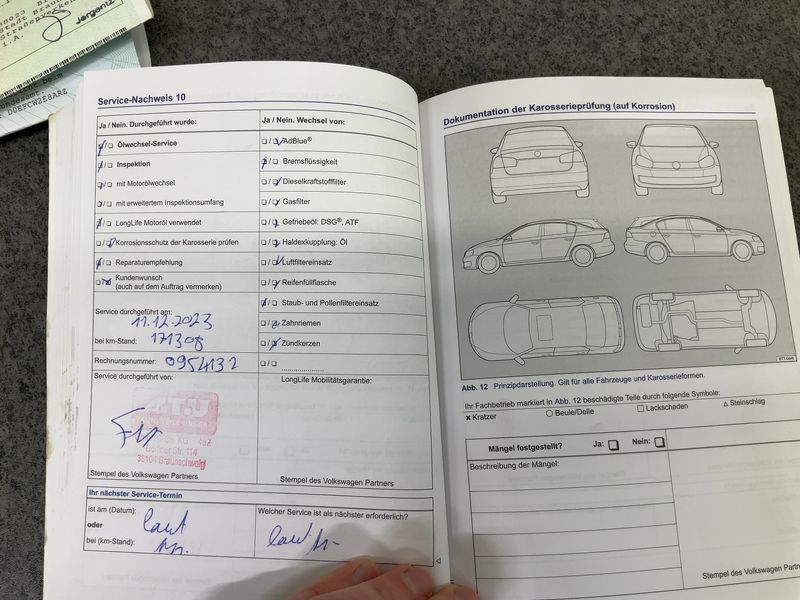 38023 B
Stadt Brau
Straßenverken
i.A.
Jergentz
D0EFCW2E8ARZ
Service-Nachweis 10
Ja / Nein. Durchgeführt wurde:
Ölwechsel-Service
Inspektion
mit Motorölwechsel
mit erweitertem Inspektionsumfang
LongLife Motoröl verwendet
Korrosionsschutz der Karosserie prüfen
Reparaturempfehlung
Kundenwunsch
(auch auf dem Auftrag vermerken)
Service durchgeführt am:
11.12.2023
bei km-Stand: 171308
Rechnungsnummer: 0954132
Service durchgeführt von:
A.T.U
KG 482
Str. 114
38104 Braunschweig
Stempel des Volkswagen Partners
Ja / Nein. Wechsel von:
AdBlue®
Bremsflüssigkeit
Dieselkraftstofffilter
Gasfilter
Getriebeöl: DSG®, ATF
Haldexkupplung: Öl
Luftfiltereinsatz
Reifenfüllflasche
Staub- und Pollenfiltereinsatz
Zahnriemen
Zündkerzen
LongLife Mobilitätsgarantie:
Stempel des Volkswagen Partners
Ihr nächster Service-Termin
ist am (Datum):
oder
bei (km-Stand):
laut
Welcher Service ist als nächster erforderlich?
laut
Dokumentation der Karosserieprüfung (auf Korrosion)
Abb. 12 Prinzipdarstellung. Gilt für alle Fahrzeuge und Karosserieformen.
Ihr Fachbetrieb markiert in Abb. 12 beschädigte Teile durch folgende Symbole:
Kratzer
Beule/Delle
Lackschaden
Steinschlag
Mängel festgestellt? Ja: Nein:
Beschreibung der Mängel:
Stempel des Volkswagen Partn